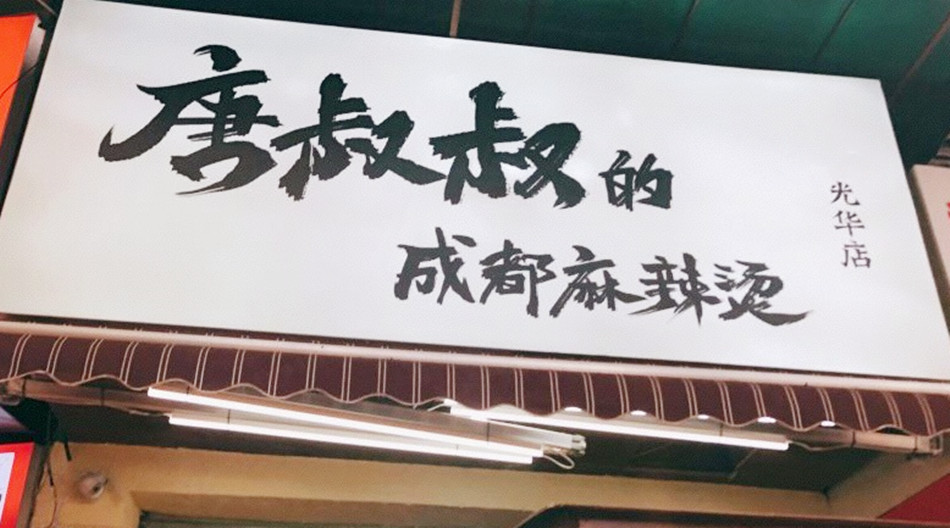 唐叔叔的
成都麻辣烫
光华店